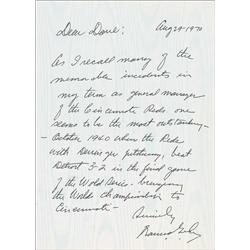 Dear Dave: Aug 29-1970
As I recall many of the
memorable incidents in
my term as general manager
of the Cincinnati Reds one
seems to be the most outstanding—
October 1940 when the Reds
with Derringer pitching, beat
Detroit 3-2 in the final game
of the World Series bringing
the Worlds championship to
Cincinnati-
Sincerely
Warren Giles